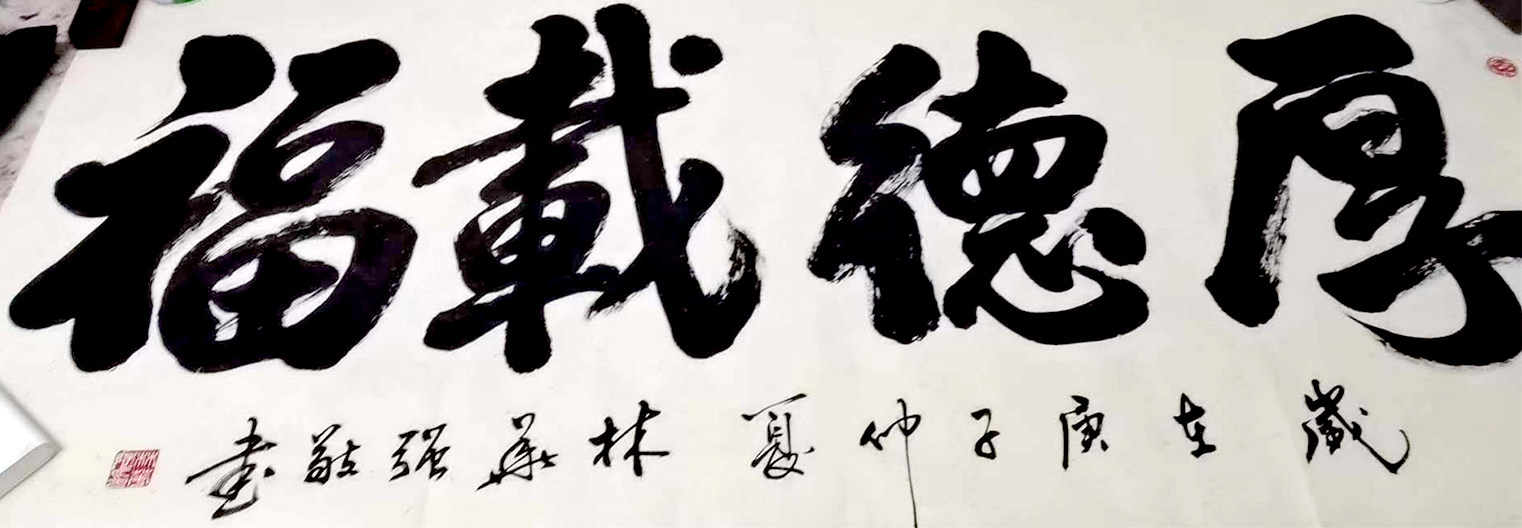 厚德載福
歲在庚子仲夏林承强敬書